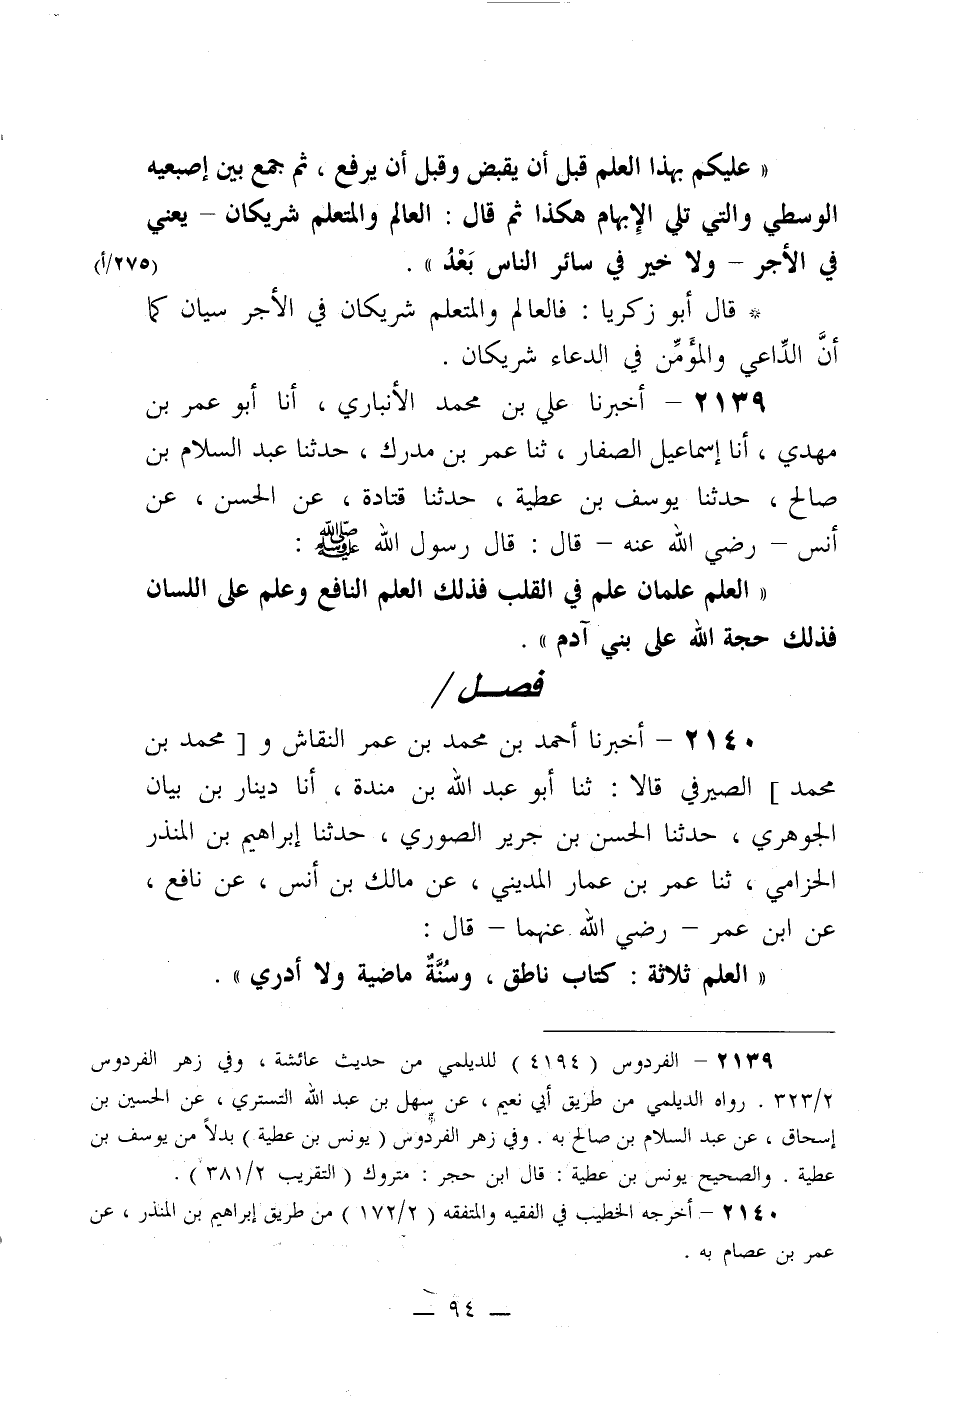 « عليكم بهذا العلم قبل أن يقبض وقبل أن يرفع ، ثم جمع بين إصبعيه
الوسطي والتي تلي الإبهام هكذا ثم قال : العالم والمتعلم شريكان – يعني
في الأجر – ولا خير في سائر الناس بَعْدُ » . (٢٧٥/أ)
* قال أبو زكريا : فالعالم والمتعلم شريكان في الأجر سيان كما
أنَّ الدِّاعي والمؤَمِّن في الدعاء شريكان .
٢١٣٩ – أخبرنا علي بن محمد الأنباري ، أنا أبو عمر بن
مهدي ، أنا إسماعيل الصفار ، ثنا عمر بن مدرك ، حدثنا عبد السلام بن
صالح ، حدثنا يوسف بن عطية ، حدثنا قتادة ، عن الحسن ، عن
أنس – رضي الله عنه – قال : قال رسول الله ﷺ :
« العلم علمان علم في القلب فذلك العلم النافع وعلم على اللسان
فذلك حجة الله على بني آدم » .
فصــل /
٢١٤٠ – أخبرنا أحمد بن محمد بن عمر النقاش و [ محمد بن
محمد ] الصيرفي قالا : ثنا أبو عبد الله بن مندة ، أنا دينار بن بيان
الجوهري ، حدثنا الحسن بن جرير الصوري ، حدثنا إبراهيم بن المنذر
الحزامي ، ثنا عمر بن عمار المديني ، عن مالك بن أنس ، عن نافع ،
عن ابن عمر – رضي الله عنهما – قال :
« العلم ثلاثة : كتاب ناطق ، وسُنَّةٌ ماضية ولا أدري » .
٢١٣٩ – الفردوس ( ٤١٩٤ ) للديلمي من حديث عائشة ، وفي زهر الفردوس
٣٢٣/٢ . رواه الديلمي من طريق أبي نعيم ، عن سهل بن عبد الله التستري ، عن الحسين بن
إسحاق ، عن عبد السلام بن صالح به . وفي زهر الفردوس ( يونس بن عطية ) بدلاً من يوسف بن
عطية . والصحيح يونس بن عطية : قال ابن حجر : متروك ( التقريب ٣٨١/٢ ) .
٢١٤٠ – أخرجه الخطيب في الفقيه والمتفقه ( ١٧٢/٢ ) من طريق إبراهيم بن المنذر ، عن
عمر بن عصام به .
— ٩٤ —